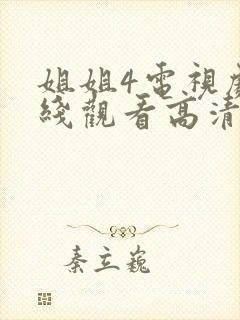 姐姐4電視劇
綫觀看高清
秦立巍